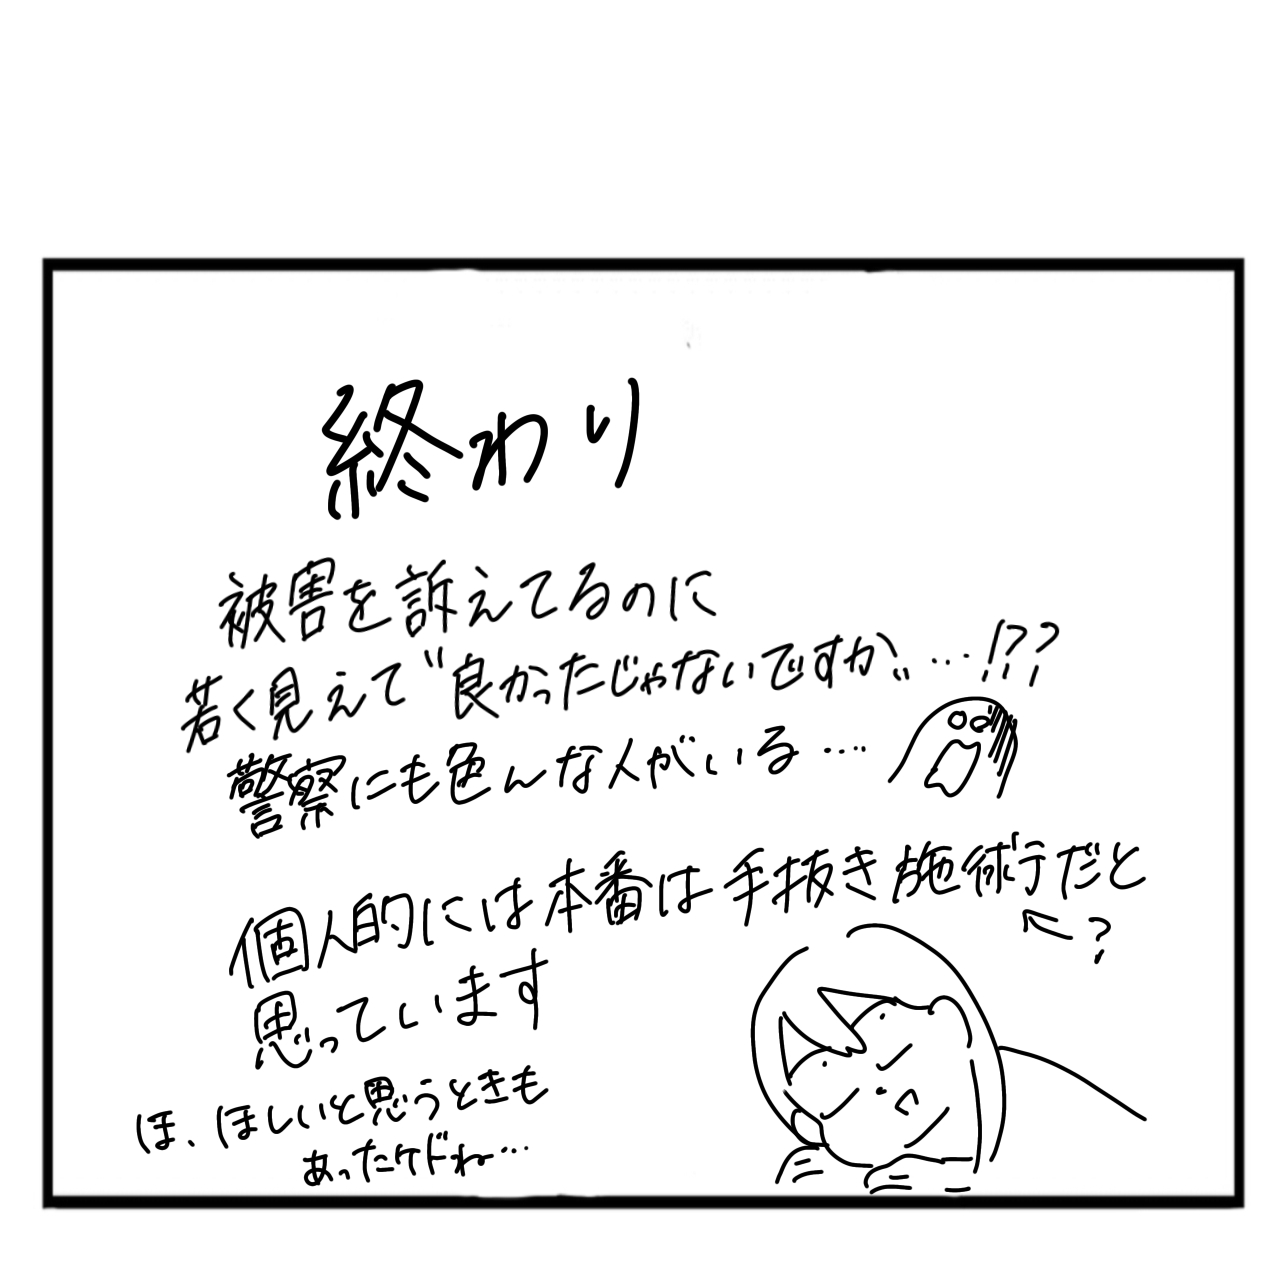 終わり
被害を訴えてるのに
若く見えて〝良かったじゃないですか〟…!??
警察にも色んな人がいる….
個人的には本番は手抜き施術だと
←?
思っています
ほ、ほしいと思うときも
あったケドね…